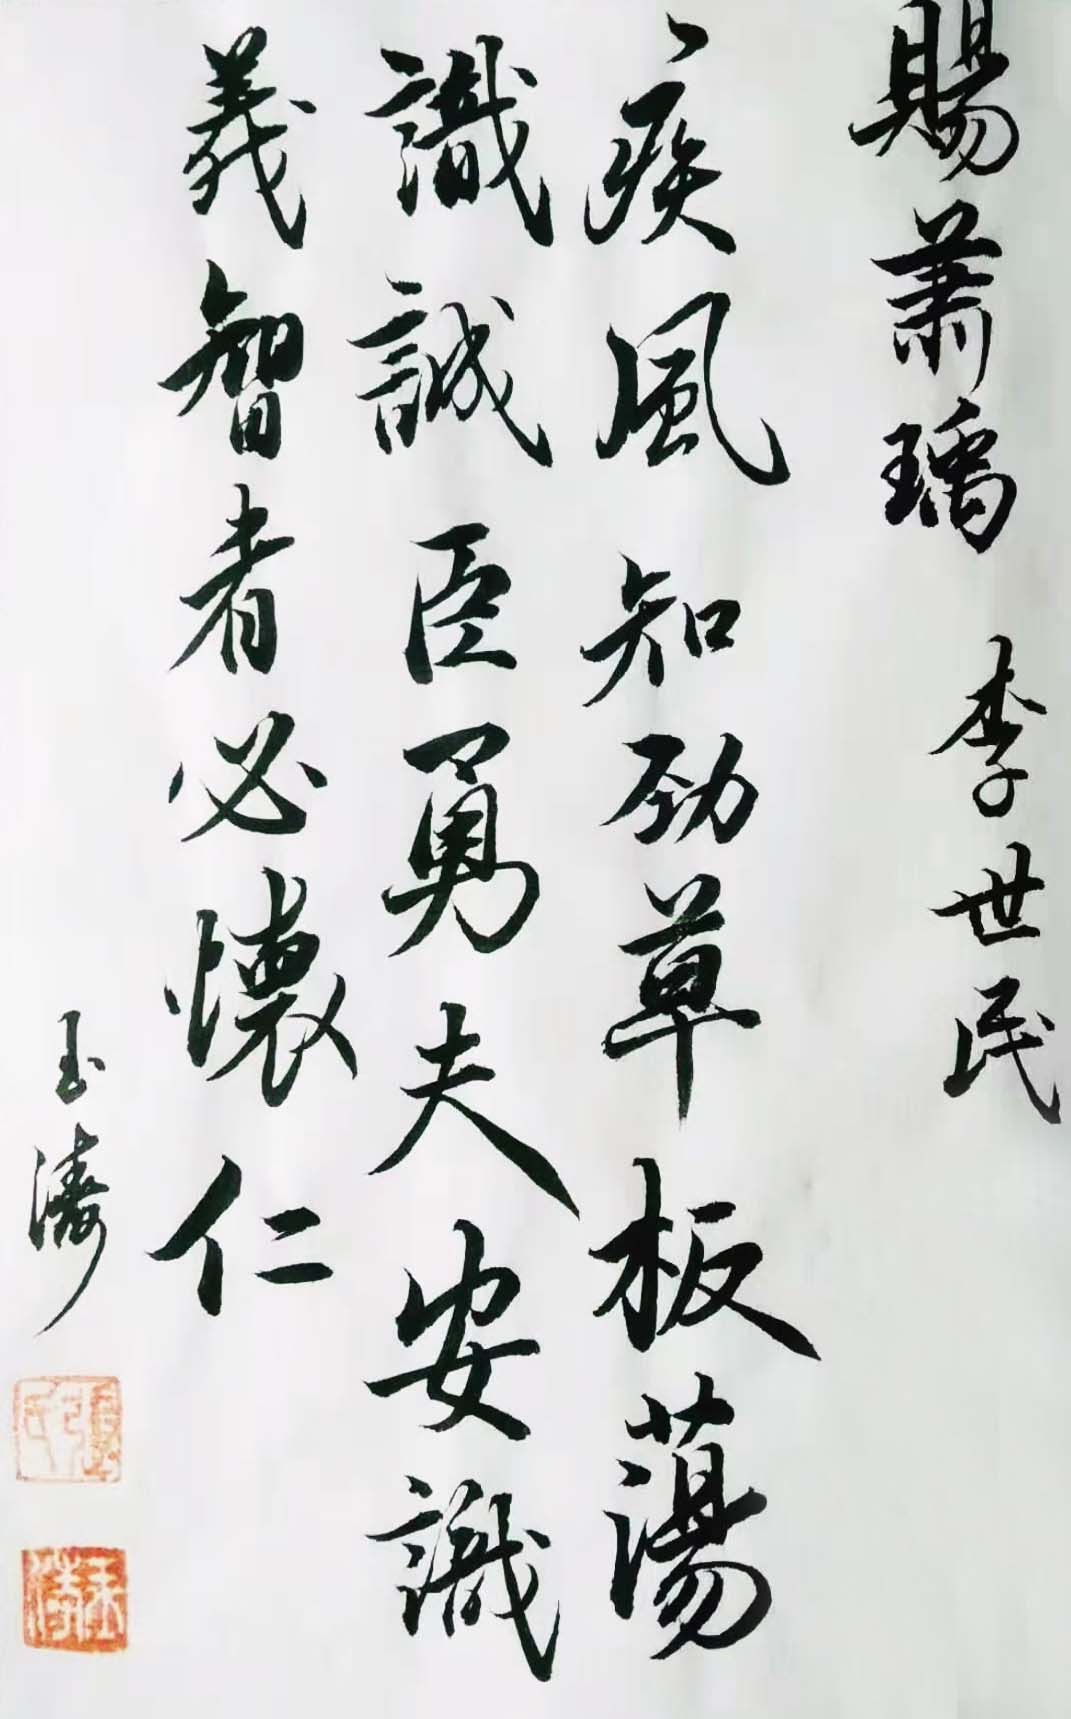 賜蕭瑀 李世民
疾風知勁草板蕩
識誠臣勇夫安識
義智者必懷仁
玉濤
玉濤